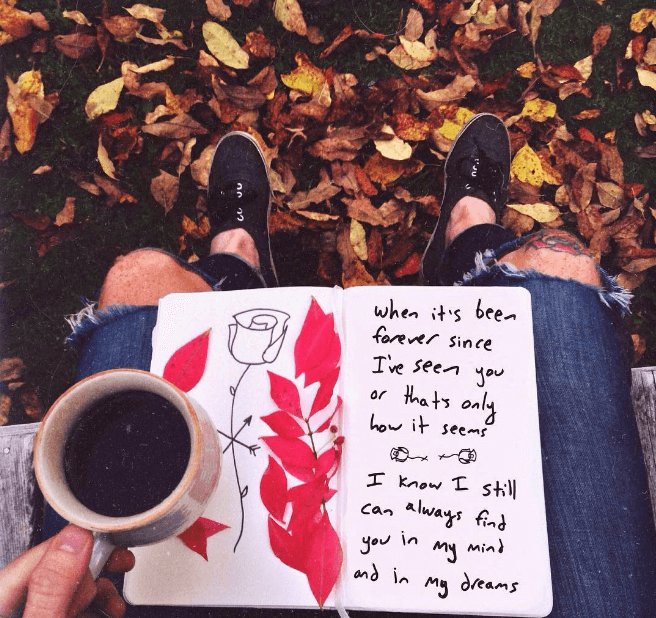 When it's been
forever since
I've seen you
or that's only
how it seems
I know I still
can always find
you in my mind
and in my dreams